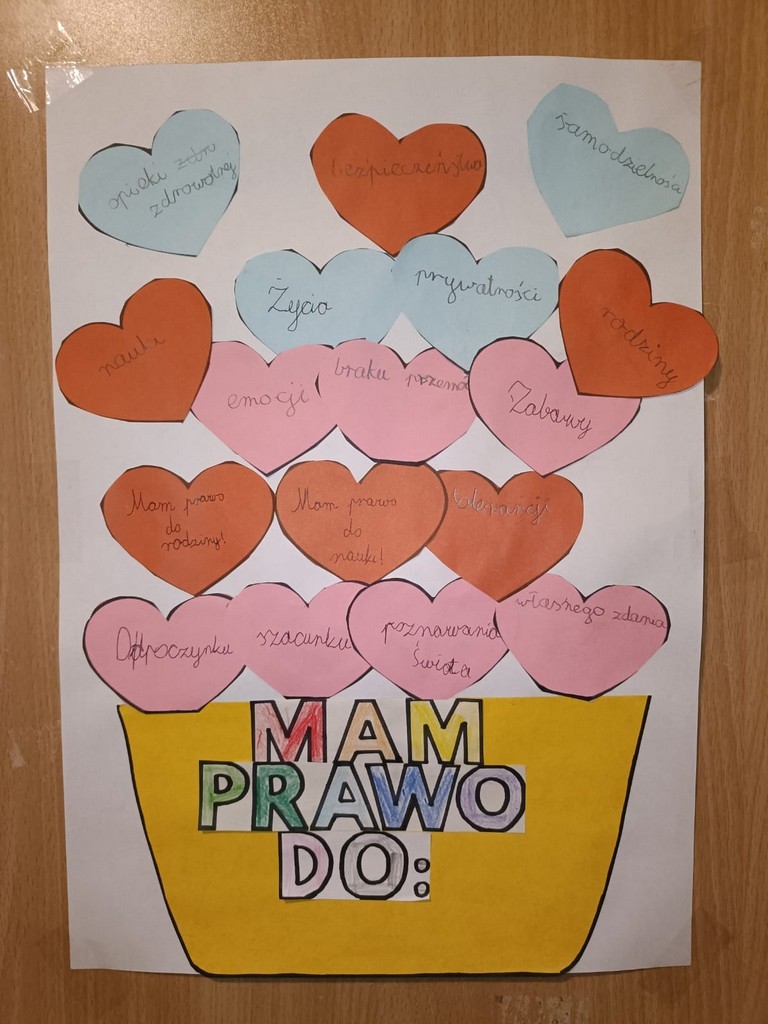 opieki zdro
zdrowotnej
bezpieczeństwo
samodzielności
Życia
prywatności
nauki
rodziny
emocji
braku przemo
Zabawy
Mam prawo
do
rodziny!
Mam prawo
do
nauki!
tolerancji
Odpoczynku
szacunku
poznawania
Świata
własnego zdania
MAM
PRAWO
DO: